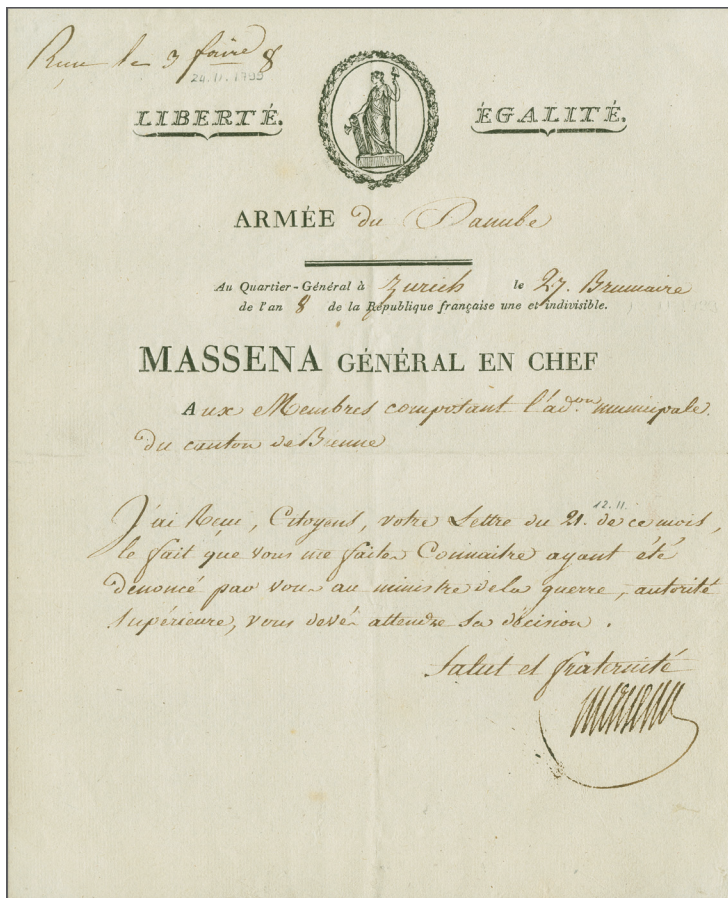 Reçu le 3 frire 8
24.11.1799
LIBERTÉ. ÉGALITÉ.
ARMÉE du Danube
Au Quartier-Général à Zurich le 27. Brumaire
de l'an 8 de la République française une et indivisible.
MASSENA GÉNÉRAL EN CHEF
Aux Membres composant l'adon. municipale.
du canton de Bienne
12.11.
J'ai Reçu, Citoyens, votre Lettre du 21. de ce mois,
le fait que vous me faites Connaitre ayant été
denoncé par vous au ministre de la guerre, autorité
Supérieure, vous devés attendre sa décision.
Salut et fraternité
Massena